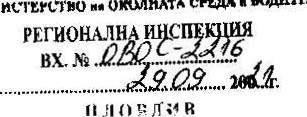 МИНИСТЕРСТВО на ОКОЛНАТА СРЕДА и ВОДИТЕ
РЕГИОНАЛНА ИНСПЕКЦИЯ
ВХ. № ОВОС-2216
29.09 г.
ПЛОВДИВ